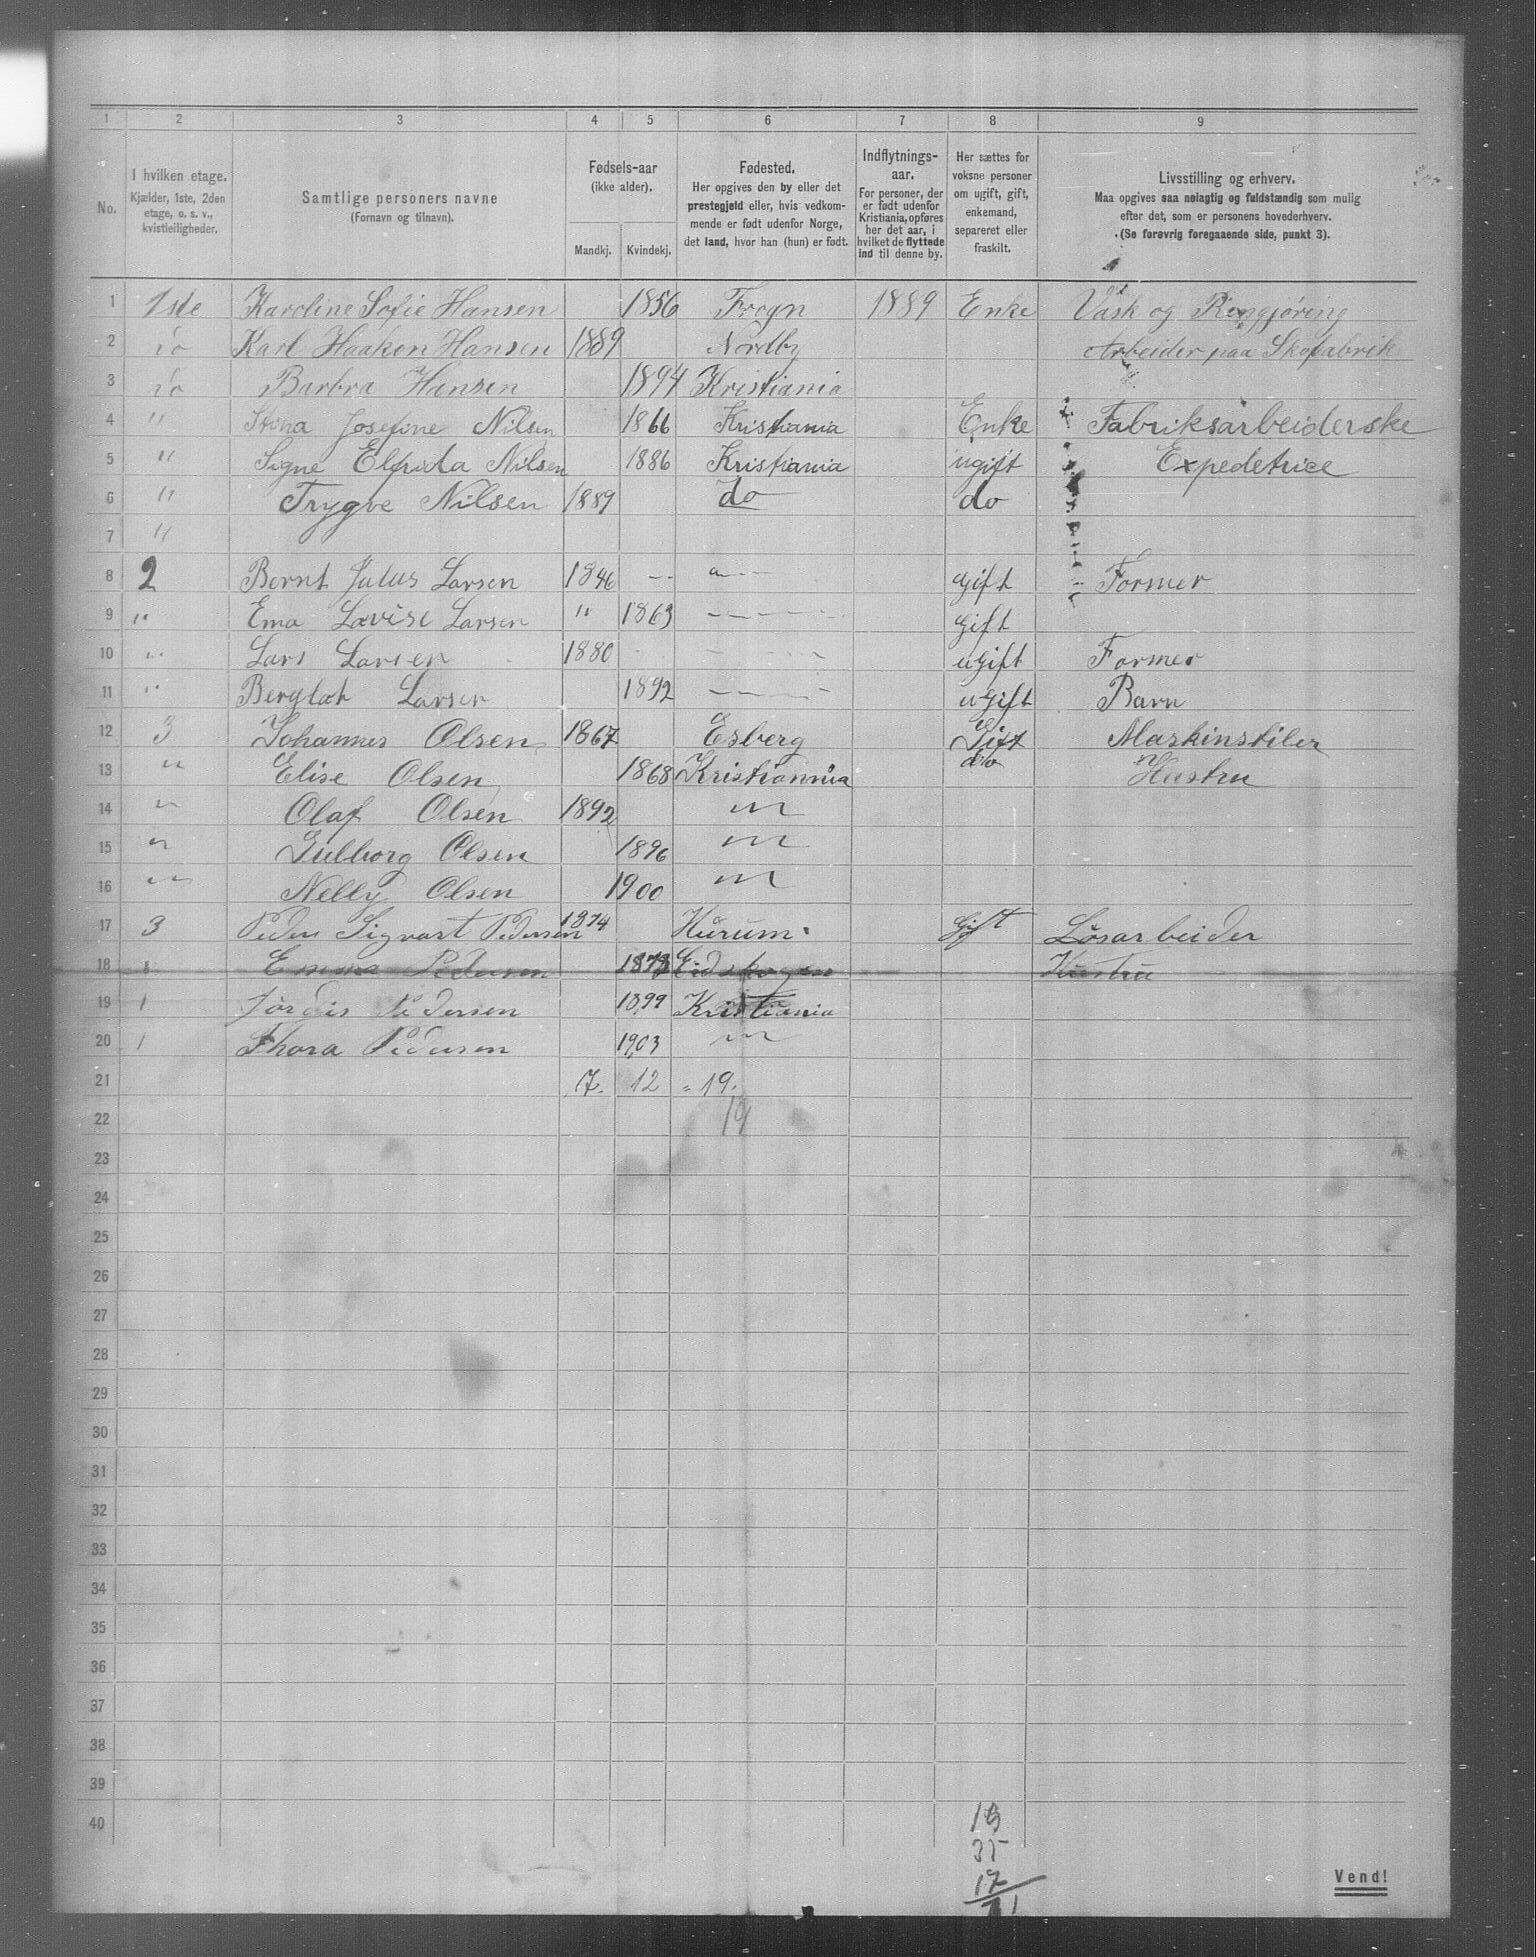 1 2 3 4 5 6 7 8 9
No.
I hvilken etage.
Kjælder, 1ste, 2den
etage, o. s. v.,
kvistleiligheder.
Samtlige personers navne
(Fornavn og tilnavn).
Fødsels-aar
(ikke alder).
Mandkj. Kvindekj.
Fødested.
Her opgives den by eller det
prestegjeld eller, hvis vedkom-
mende er født udenfor Norge,
det land, hvor han (hun) er født.
Indflytnings-
aar.
For personer, der
er født udenfor
Kristiania, opføres
her det aar, i
hvilket de flyttede
ind til denne by.
Her sættes for
voksne personer
om ugift, gift,
enkemand,
separeret eller
fraskilt.
Livsstilling og erhverv.
Maa opgives saa nøiagtig og fuldstændig som mulig
efter det, som er personens hovederhverv.
(Se forøvrig foregaaende side, punkt 3).
1 1ste Karoline Sofie Hansen 1856 Frogn 1889 Enke Vask og Rengjøring
2 do Karl Haakon Hansen 1889 Nordby Arbeider paa Skofabrik
3 do Barbra Hansen 1894 Kristiania
4 " Stina Josefine Nilsen 1866 Kristiania Enke Fabriksarbeiderske
5 " Signe Elfrida Nilsen 1886 Kristiania ugift Expedetrice
6 " Trygve Nilsen 1889 do do
7 "
8 2 Bernt Julus Larsen 1846 -- -- gift Former
9 " Ema Lovise Larsen " 1863 -- gift
10 " Lars Larsen 1880 -- ugift Former
11 " Larsen 1892 -- ugift Barn
12 3 Johannes Olsen 1867 Esberg Gift Maskinstiler
13 " Elise Olsen 1868 Kristiannia do Hustru
14 " Olaf Olsen 1892 "
15 " Gulborg Olsen 1896 "
16 " Nelly Olsen 1900 "
17 3 Peder Sigvart Pedersen 1874 Hurum Gift Løsarbeider
18 Emma Pedersen 1878 Eidskogen Hustru
19 1 Jordis Pedersen 1899 Kristiania
20 1 Thora Pedersen 1903 "
21 7. 12 = 19.
22 19
23
24
25
26
27
28
29
30
31
32
33
34
35
36
37
38
39
40
19
35
17
Vend!